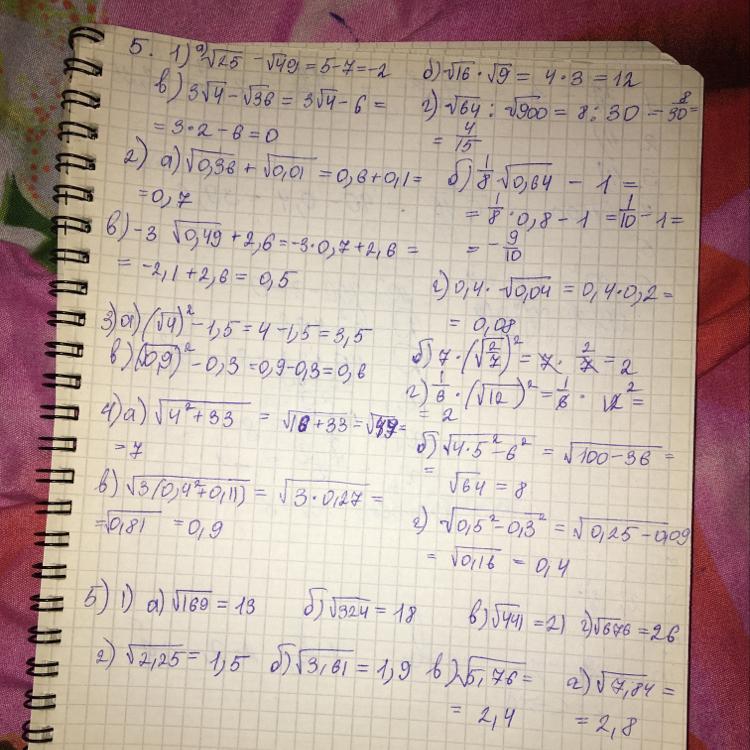 5. 1) а) √25 - √49 = 5-7 = -2
б) √16 · √9 = 4·3 = 12
в) 3√4 - √36 = 3√4 - 6 =
= 3·2 - 6 = 0
г) √64 : √900 = 8 : 30 = 8/30 =
= 4/15
2) а) √0,36 + √0,01 = 0,6+0,1=
=0,7
б) 1/8 · √0,64 - 1 =
= 1/8 · 0,8 - 1 = 1/10 - 1 =
= - 9/10
в) -3 √0,49 + 2,6 = -3·0,7 + 2,6 =
= -2,1 + 2,6 = 0,5
г) 0,4 · √0,04 = 0,4·0,2 =
= 0,08
3) а) (√4)² - 1,5 = 4 - 1,5 = 3,5
б) 7 · (√2/7)² = 7 · 2/7 = 2
в) (√0,9)² - 0,3 = 0,9-0,3 = 0,6
г) 1/6 · (√12)² = 1/6 · 12 2 =
= 2
4) а) √4²+33 = √16+33 = √49 =
= 7
б) √4·5²-6² = √100-36 =
= √64 = 8
в) √3(0,4²+0,11) = √3·0,27 =
= √0,81 = 0,9
г) √0,5²-0,3² = √0,25-0,09
= √0,16 = 0,4
5) 1) а) √169 = 13 б) √324 = 18 в) √441 = 21 г) √676 = 26
2) √2,25 = 1,5 б) √3,61 = 1,9 в) √5,76 =
= 2,4
г) √7,84 =
= 2,8